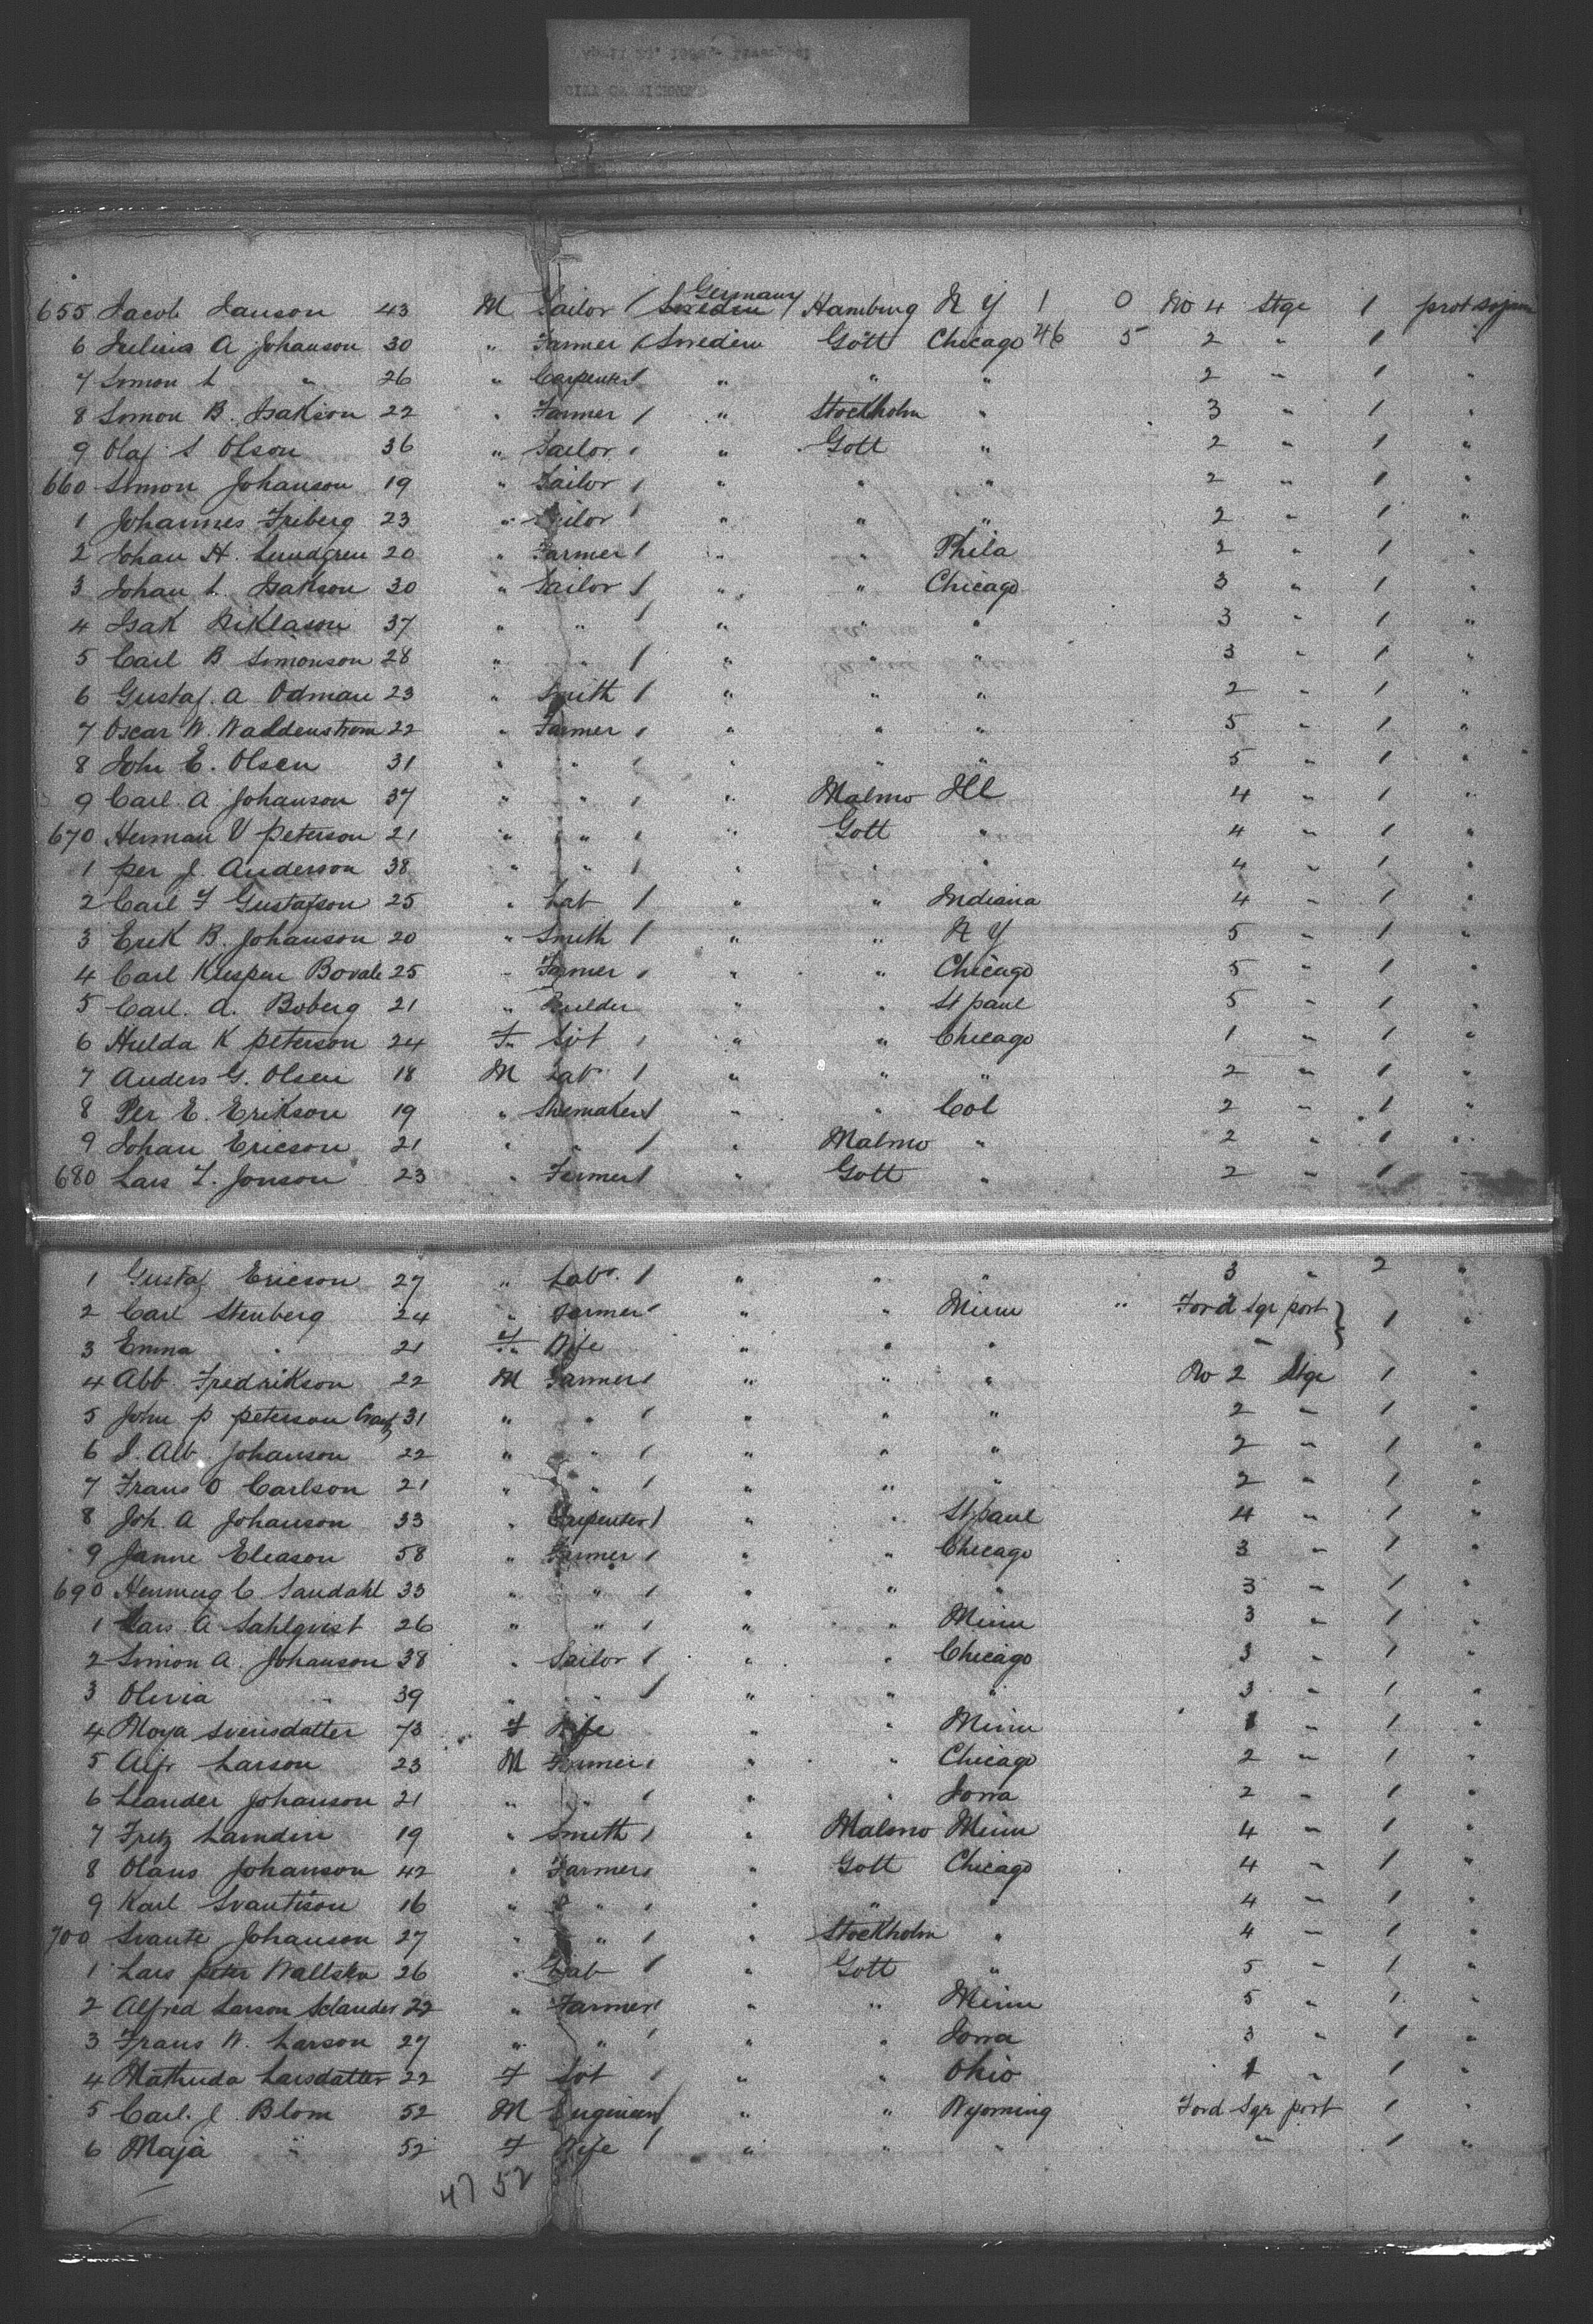 655 Jacob Janson 43 M Sailor / Sweden Germany / Hamburg N Y 1 0 No 4 Stge 1 prot sojurn
6 Julius A Johanson 30 " Farmer / Sweden Gött Chicago 46 5 2 " 1 "
7 Simon L " 26 " Carpenter / " " " 2 " 1 "
8 Simon B. Isakson 22 " Farmer / " Stockholm " 3 " 1 "
9 Olaf S Olson 36 " Sailor / " Gott " 2 " 1 "
660 Simon Johanson 19 " Sailor / " " " 2 " 1 "
1 Johannes Friberg 23 " Sailor / " " " 2 " 1 "
2 Johan H. Lundgren 20 " Farmer / " " Phila 2 " 1 "
3 Johan L. Isakson 30 " Sailor / " " Chicago 3 " 1 "
4 Isak Niklason 37 " " / " " " 3 " 1 "
5 Carl B Simonson 28 " " / " " " 3 " 1 "
6 Gustaf. A Odman 23 " Smith / " " " 2 " 1 "
7 Oscar W. Waldenstrom 22 " Farmer / " " " 5 " 1 "
8 John E. Olsen 31 " " / " " " 5 " 1 "
9 Carl. A. Johanson 37 " " / " Malmo Ill 4 " 1 "
670 Herman V peterson 21 " " / " Gott " 4 " 1 "
1 per J. Anderson 38 " " / " " " 4 " 1 "
2 Carl F Gustafson 25 " Lab / " " Indiana 4 " 1 "
3 Erik B. Johanson 20 " Smith / " " N Y 5 " 1 "
4 Carl 25 " Farmer / " " Chicago 5 " 1 "
5 Carl. A. Boberg 21 " Builder " " St paul 5 " 1 "
6 Hulda K peterson 24 F Svt / " " Chicago 1 " 1 "
7 Anders G. Olsen 18 M Lab / " " " 2 " 1 "
8 Per E. Erikson 19 " Shemaker / " " Col 2 " 1 "
9 Johan Ericson 21 " " / " Malmo " 2 " 1 "
680 Lars F. Jonson 23 " Farmer / " Gott " 2 " 1 "
1 Gustaf Ericson 27 " Labr. / " " " 3 " 2 "
2 Carl Stenberg 24 " Farmer / " " Minn " Ford Sgr port } 1 "
3 Emma " 21 F Wife " " " "
4 Abb Fredrikson 22 M Farmer / " " " No 2 Stge 1 "
5 John p peterson 31 " " / " " " 2 " 1 "
6 J. Alb. Johanson 22 " " / " " " 2 " 1 "
7 Frans O Carlson 21 " " / " " " 2 " 1 "
8 Joh. A Johanson 33 " Carpenter / " " St paul 4 " 1 "
9 Janne Eleason 58 " Farmer / " " Chicago 3 " 1 "
690 Henning C Sandahl 33 " " / " " " 3 " 1 "
1 Lars A Sahlqvist 26 " " / " " Minn 3 " 1 "
2 Simon A. Johanson 38 " Sailor / " " Chicago 3 " 1 "
3 Olivia " 39 " " / " " " 3 " 1 "
4 Moya Svensdatter 73 F Wife " " Minn 1 " 1 "
5 Alfr Larson 23 M Farmer / " " Chicago 2 " 1 "
6 Leander Johanson 21 " " / " " Iowa 2 " 1 "
7 Fritz Lamdin 19 " Smith / " Malmo Minn 4 " 1 "
8 Olaus Johanson 42 " Farmer / " Gott Chicago 4 " 1 "
9 Karl Svantison 16 " " / " " " 4 " 1 "
700 Svante Johanson 27 " " / " Stockholm " 4 " 1 "
1 Lars peter 26 " Lab / " Gott " 5 " 1 "
2 Alfred Larson 22 " Farmer / " " Minn 5 " 1 "
3 Frans W. Larson 27 " " / " " Iowa 3 " 1 "
4 Mathilda Larsdatter 22 F Svt / " " Ohio 1 " 1 "
5 Carl. J. Blom 52 M Engineer / " " Wyoming Ford Sgr port 1 "
6 Maja " 52 F Wife / " " " " 1 "
47 52